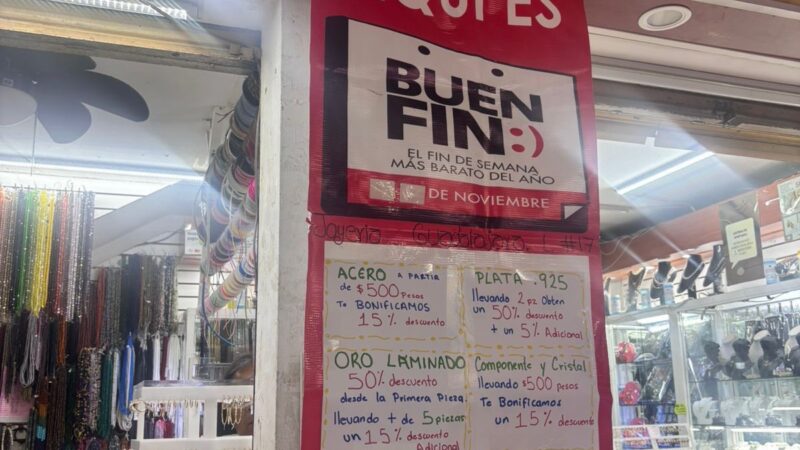 AQUÍ ES
BUEN
FIN:)
EL FIN DE SEMANA
MÁS BARATO DEL AÑO
DE NOVIEMBRE
Joyeria Guadalajara L #17
ACERO A PARTIR
de $500 Pesos
Te BONIFICAMOS
15% descuento
PLATA .925
llevando 2 pz Obten
un 50% descuento
+ un 5% Adicional
ORO LAMINADO
50% descuento
desde la Primera Pieza
llevando + de 5 piezas
un 15% descuento
Adicional
Componente y Cristal
llevando $500 pesos
Te Bonificamos
un 15% descuento